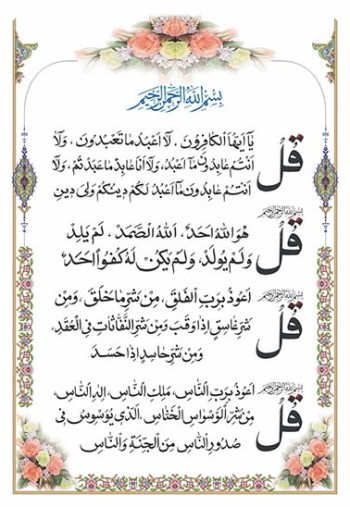 بسم الله الرحمن الرحیم
قُل
یٰٓا اَیُّهَا الکافِرُونَ، لآ اَعبُدُ ما تَعبُدُونَ، وَلآ
اَنتُم عابِدُونَ مٰآ اَعبُدُ، وَلآ اَنا عابِدٌ ما عَبَدتُّم، وَلآ
اَنتُم عابِدُونَ مٰآ اَعبُدُ لَکُم دینُکُم وَلِیَ دینِ
بسم الله الرحمن الرحیم
قُل
هُوَ اللهُ اَحَدٌ، اَللهُ الصَّمَدُ، لَم یَلِد
وَلَم یُولَد، وَلَم یَکُن لَهُ کُفُوًا اَحَدٌ
بسم الله الرحمن الرحیم
قُل
اَعُوذُ بِرَبِّ الفَلَقِ، مِن شَرِّ ما خَلَقَ، وَمِن
شَرِّ غاسِقٍ اِذا وَقَبَ وَمِن شَرِّ النَّفّاثاتِ فِی العُقَدِ،
وَمِن شَرِّ حاسِدٍ اِذا حَسَدَ
بسم الله الرحمن الرحیم
قُل
اَعُوذُ بِرَبِّ النّاسِ، مَلِکِ النّاسِ، اِلهِ النّاسِ
مِن شَرِّ الوَسواسِ الخَنّاسِ، اَلَّذی یُوَسوِسُ فی
صُدُورِ النّاسِ مِنَ الجِنَّةِ وَالنّاسِ